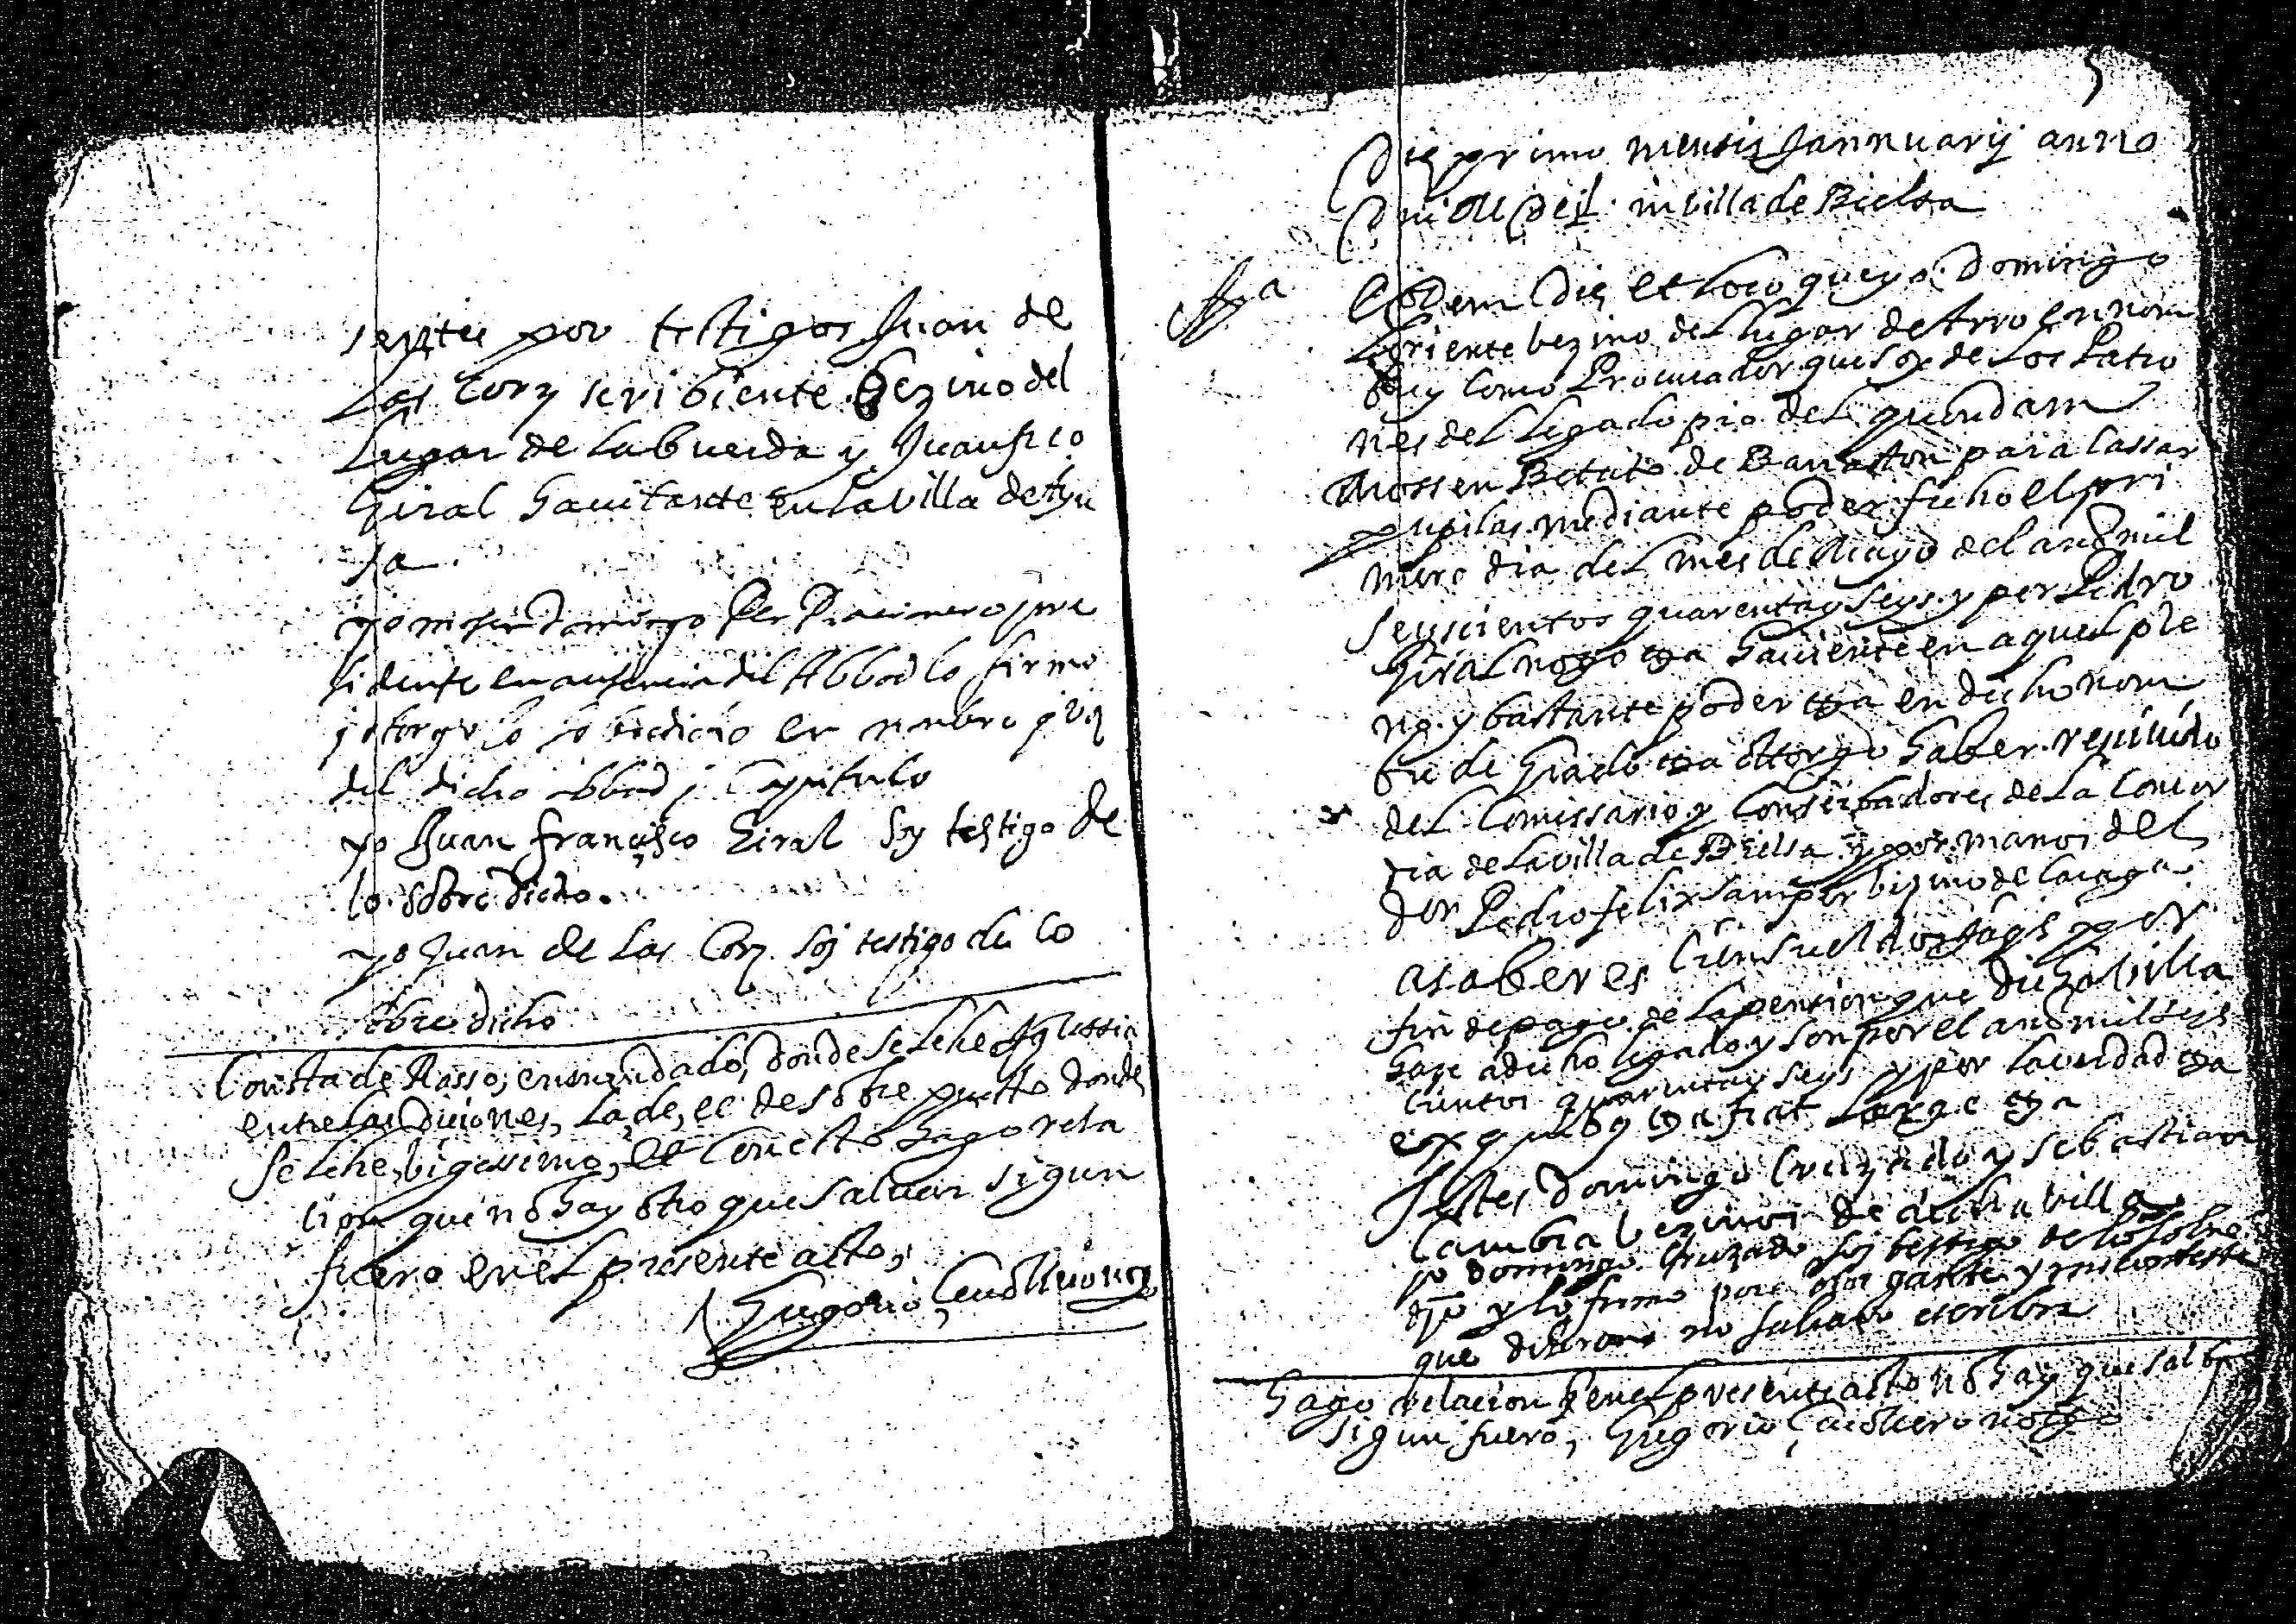 sentes por testigos Juan de
Las Corz scribiente bezino del
Lugar de Labuerda y Juan fr.co
Giral havitante en la villa de Ayn
sa
yo mossen Domingo Per Racionero pre
sidente en ausencia del Abbad lo firmo
y otorgo lo sobredicho en nombre
del dicho abbad y Capitulo
yo Juan francisco Giral soy testigo de
lo sobre dicho.
yo Juan de Las Corz soy testigo de lo
sobre dicho
Consta de Rasso, enmendado, donde se lehe Iglessia
entre las diciones, la, de, et de sobre puesto donde
se lehe, bigessimo, et con esto hago rela
cion que no hay otro que salvar sigun
fuero en el presente acto,
Gregorio Cau
Die primo mensis Jannuarij anno
Dni in villa de Bielsa
Eodem Die et loco que yo Domingo
bezino del lugar de Arro en nom
bre y como Procurador que soy de Los Patro
nes del legado pio del quondam
Mossen Betato de Barraston para cassar
pupilas mediante poder fecho el pri
mero dia del mes de Mayo del año mil
seyscientos quarenta y seys y por Pedro
Giral haviente en aquel ple
no y bastante poder en dicho nom
bre de Grado otorgo haber recivido
del Comissario y Conserbadores de la Concor
dia de la villa de Bielsa y por manos del
dor Pedro felix Samper bezino de Caragª
asaber es Cien sueldos Jaqs por
fin de pago de la pencion que dicha villa
haze a dicho legado y son por el año mil seys
cientos quarenta y seys y por la verdad
ex quibus fiat large
Testes Domingo Cruzado y Sebastian
Cambra bezinos de dicha villa
yo domingo Cruzado soy testigo de lo sobre
dho y lo firmo por el otorgante y mi contestes
que dixeron no sabian escribir
Hago relacion q en el presente acto no hay que salbar
sigun fuero, Gregorio